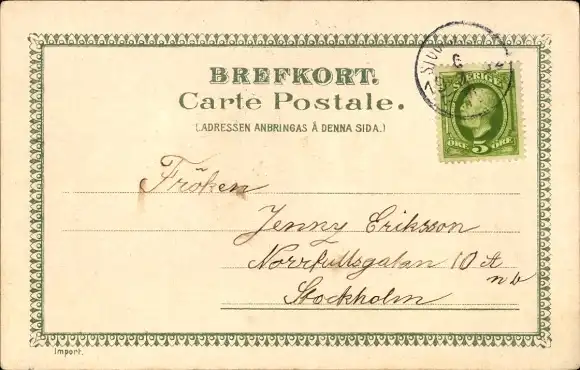 BREFKORT.
Carte Postale.
(ADRESSEN ANBRINGAS Å DENNA SIDA.)
SVERIGE
ÖRE 5 ÖRE
Fröken
Jenny Eriksson
Norrtullsgatan 10 A
n b
Stockholm
Import.